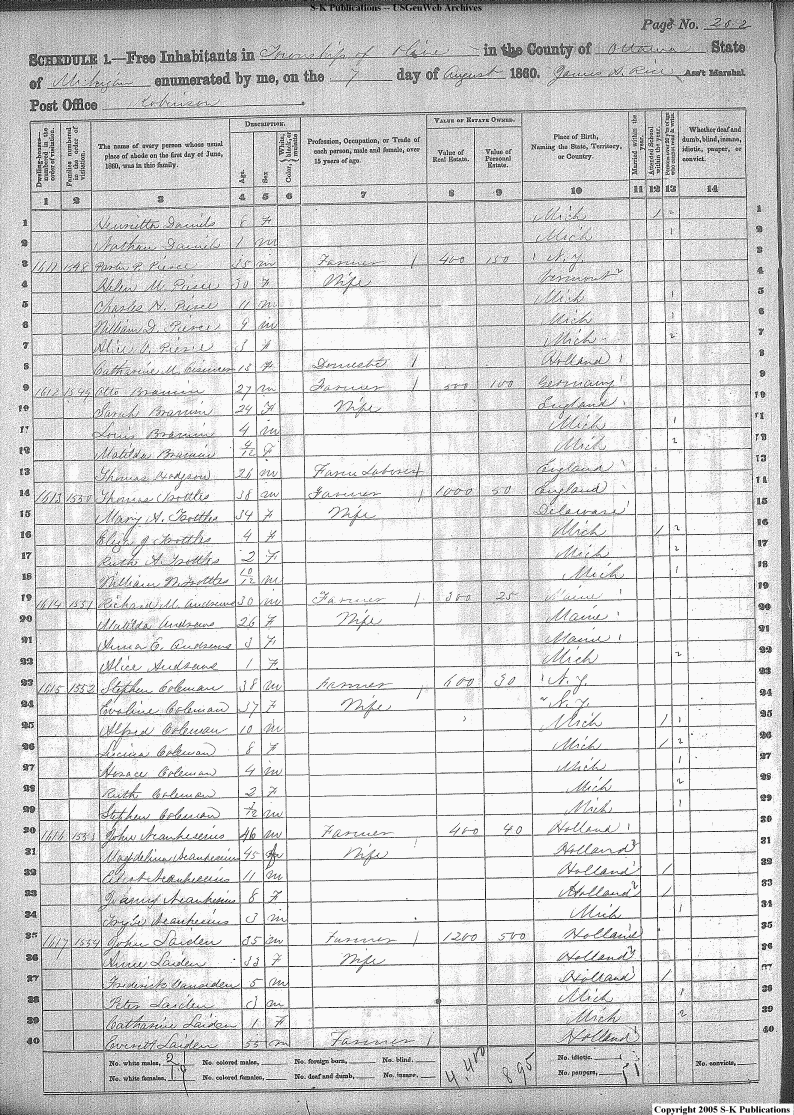 S-K Publications -- USGenWeb Archives
Page No. 202
SCHEDULE 1.—Free Inhabitants in Township of Olive in the County of Ottawa State
of Michigan enumerated by me, on the 7 day of August 1860. James A. Rice Ass't Marshal
Post Office Robinson
Dwelling-houses—numbered in the order of visitation.
Families numbered in the order of visitation.
The name of every person whose usual place of abode on the first day of June, 1860, was in this family.
DESCRIPTION.
Age.
Sex.
Color, White, black, or mulatto.
Profession, Occupation, or Trade of each person, male and female, over 15 years of age.
VALUE OF ESTATE OWNED.
Value of Real Estate.
Value of Personal Estate.
Place of Birth, Naming the State, Territory, or Country.
Married within the year.
Attended School within the year.
Whether deaf and dumb, blind, insane, idiotic, pauper, or convict.
1 2 3 4 5 6 7 8 9 10 11 12 13 14
1 Henrietta Daniels 8 F Mich 1 2 1
2 Nathan Daniels 1 m Mich 1 2
3 1611 1548 Pierce 35 m Farmer 1 400 150 N.Y 3
4 Helen M. Pierce 30 F Wife Vermont 2 4
5 Charles H. Pierce 11 m Mich 1 5
6 William D. Pierce 9 m Mich 1 6
7 Alice Pierce 3 F Mich 2 7
8 Catharine M. 18 F Domestic 1 Holland 1 8
9 1612 1549 Otto Bramin 27 m Farmer 1 500 100 Germany 1 9
10 Sarah Bramin 24 F Wife England 1 10
11 Louis Bramin 4 m Mich 1 11
12 Matilda Bramin 4/12 F Mich 2 12
13 Thomas Hodgson 26 m Farm Laborer 1 England 1 13
14 1613 1550 Thomas Trottles 38 m Farmer 1 1000 50 England 1 14
15 Mary A. Trottles 34 F Wife Delaware 15
16 Eliza J Trottles 4 F Mich 1 2 16
17 Ruth A. Trottles 2 F Mich 2 17
18 William Trottles 10/12 m Mich 1 18
19 1614 1551 Richard M. Andrews 30 m Farmer 1 300 25 Maine 1 19
20 Matilda Andrews 26 F Wife Maine 20
21 Anna E. Andrews 3 F Maine 21
22 Alice Andrews 1 F Mich 2 22
23 1615 1552 Stephen Coleman 38 m Farmer 1 600 30 N.Y 23
24 Evaline Coleman 37 F Wife N.Y. 24
25 Alfred Coleman 10 m Mich 1 1 25
26 Lucina Coleman 8 F Mich 1 2 26
27 Horace Coleman 4 m Mich 1 27
28 Ruth Coleman 2 F Mich 2 28
29 Stephen Coleman m Mich 1 29
30 1616 1553 John 46 m Farmer 1 400 40 Holland 1 30
31 45 Wife Holland 2 31
32 11 m Holland 1 32
33 8 F Holland 2 1 33
34 3 m Mich 1 34
35 1617 1554 John Laiden 35 m Farmer 1 1200 500 Holland 35
36 Laiden 33 F Wife Holland 2 36
37 Frederick 5 m Holland 1 37
38 Peter Laiden 3 m Mich 1 38
39 Catharine Laiden 1 F Mich 2 39
40 Everett Laiden 55 m Farmer 1 Holland 1 40
No. white males, No. colored males, No. foreign born, No. blind, No. idiotic,
No. white females, No. colored females, No. deaf and dumb, No. insane, No. paupers, No. convicts,
4,400 895
Copyright 2005 S-K Publications